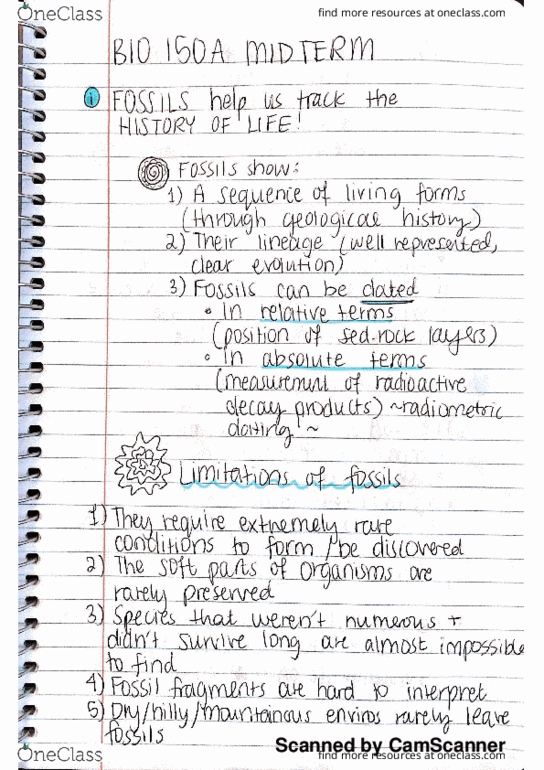 OneClass
find more resources at oneclass.com
BIO 150A MIDTERM
i FOSSILS help us track the
HISTORY OF LIFE!
Fossils show:
1) A sequence of living forms
(through geological history)
2) Their lineage (well represented,
clear evolution)
3) Fossils can be dated
• In relative terms
(position of sed-rock layers)
• In absolute terms
(measurement of radioactive
decay products) ~radiometric
dating ~
Limitations of fossils
1) They require extremely rare
conditions to form /be discovered
2) The soft parts of organisms are
rarely preserved
3) Species that weren't numerous +
didn't survive long are almost impossible
to find
4) Fossil fragments are hard to interpret
5) Dry/hilly/mountainous enviros rarely leave
fossils
Scanned by CamScanner
OneClass
find more resources at oneclass.com